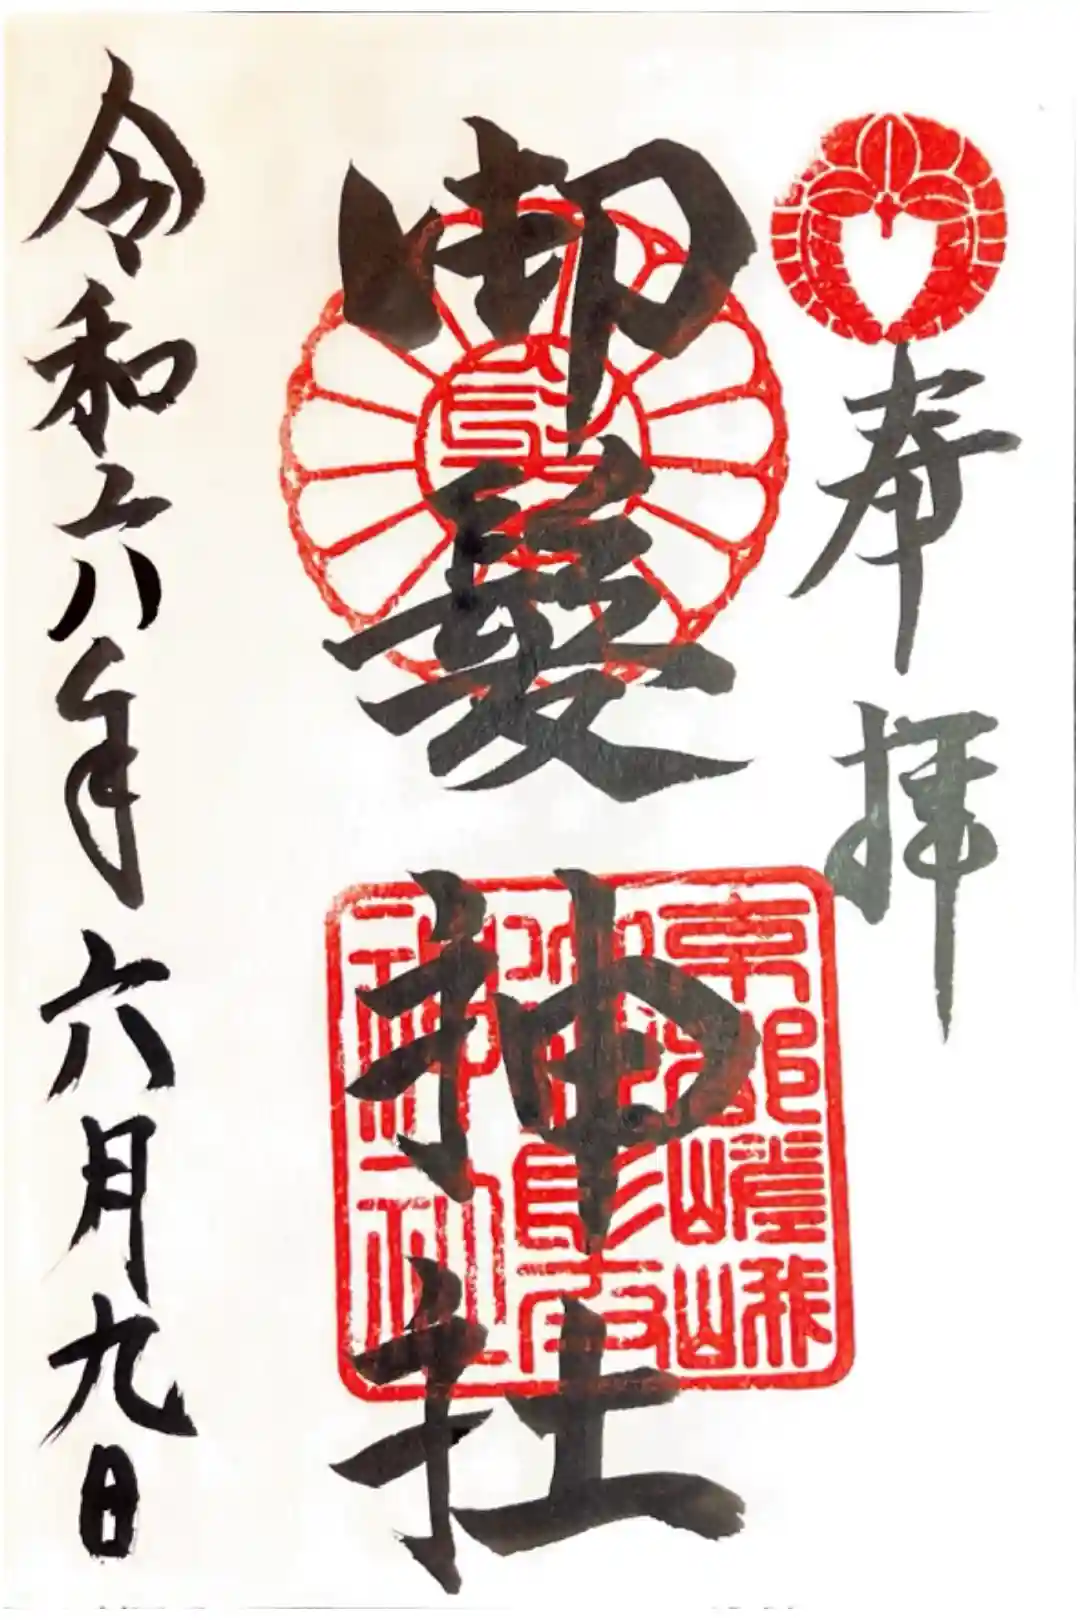 奉拝
御髪神社
令和六年六月九日
京都嵯峨
御髪神社